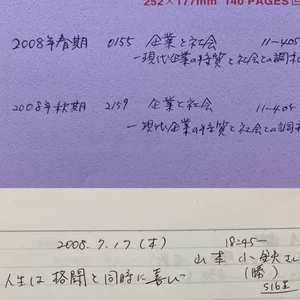 252×177mm 140 PAGES
2008年春期 0155 企業と社会 11-405
―現代企業の特質と社会との調和
2008年秋期 2159 企業と社会 11-405
―現代企業の特質と社会との調和
2008.7.17(木) 18:45―
山本
人生は格闘と同時に善い (勝)